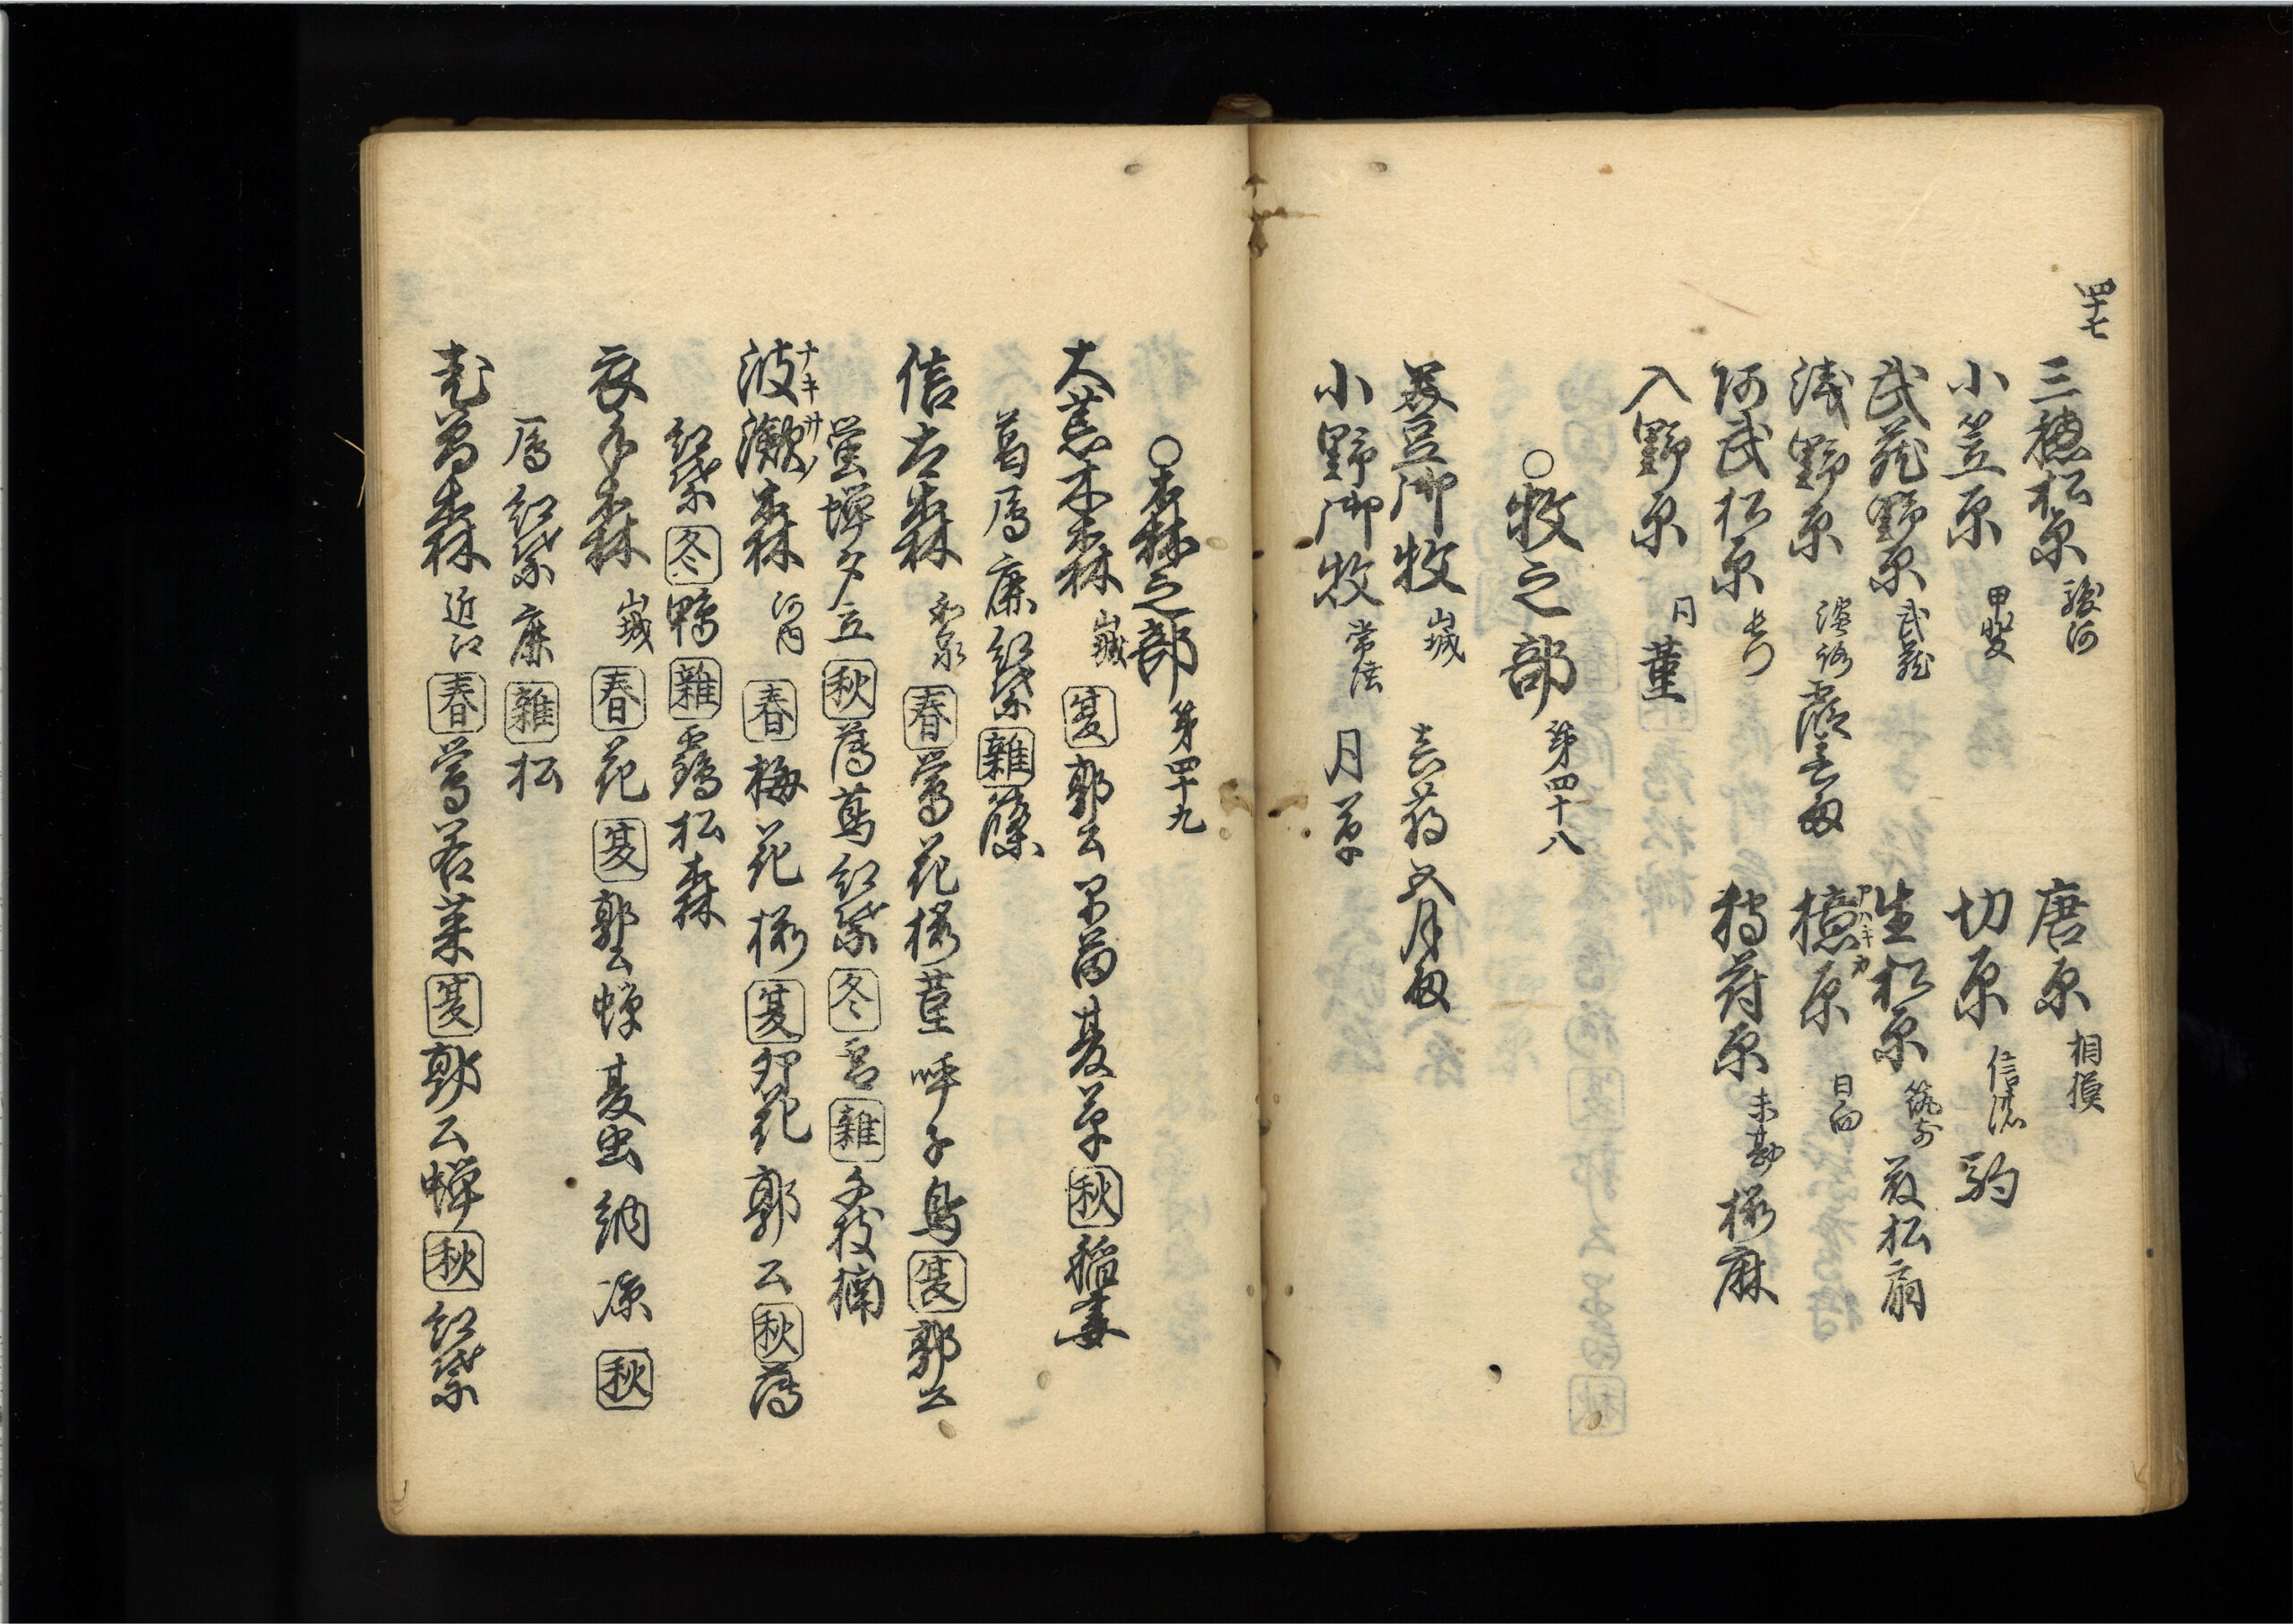 四十七
三穂松原 駿河
唐原 相摸
小笠原 甲斐
切原 信濃 駒
武蔵野原 武蔵
生松原 筑前 萩松扇
浅野原 遠江 霞
檍原 アハキカ 日向
阿武松原 長門
入野原 同 菫
原 未勘 桜麻
○牧之部 第四十八
美豆御牧 山城 真菰 五月雨
小野御牧 常陸 月 草
○森之部 第四十九
大荒木森 山城 夏 郭公 早苗 夏草 秋 稲妻
葛 鴈 鹿 紅葉 雑 篠
信太森 和泉 春 鶯 花 桜 菫 呼子鳥 夏 郭公
蛍 蝉 夕立 秋 薄 蔦 紅葉 冬 雪 雑 千枝 楠
波瀲森 ナキサノ 河内 春 梅 花 桜 夏 卯花 郭公 秋 薄
紅葉 冬 鴨 雑 鶴 松 森
衣手森 山城 春 花 夏 郭公 蝉 夏虫 納凉 秋
鴈 紅葉 鹿 雑 松
老曽森 近江 春 鶯 若菜 夏 郭公 蝉 秋 紅葉